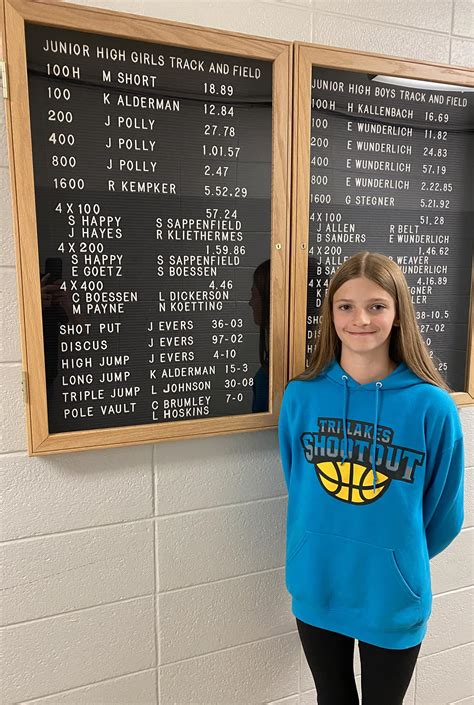 JUNIOR HIGH GIRLS TRACK AND FIELD
100H M SHORT 18.89
100 K ALDERMAN 12.84
200 J POLLY 27.78
400 J POLLY 1.01.57
800 J POLLY 2.47
1600 R KEMPKER 5.52.29
4 X 100 57.24
S HAPPY S SAPPENFIELD
J HAYES R KLIETHERMES
4 X 200 1.59.86
S HAPPY S SAPPENFIELD
E GOETZ S BOESSEN
4 X 400 4.46
C BOESSEN L DICKERSON
M PAYNE N KOETTING
SHOT PUT J EVERS 36-03
DISCUS J EVERS 97-02
HIGH JUMP J EVERS 4-10
LONG JUMP K ALDERMAN 15-3
TRIPLE JUMP L JOHNSON 30-08
POLE VAULT C BRUMLEY 7-0
L HOSKINS
JUNIOR HIGH BOYS TRACK AND FIELD
100H H KALLENBACH 16.69
100 E WUNDERLICH 11.82
200 E WUNDERLICH 24.83
400 E WUNDERLICH 57.14
800 E WUNDERLICH 2.22.85
1600 G STEGNER 5.21.92
4 X 100 51.28
J ALLEN R BELT
B SANDERS E WUNDERLICH
4 X 200 1.46.62
J ALLEN WEAVER
B S WUNDERLICH
4 X 4.16.89
STEGNER
TRI-LAKES
SHOOTOUT